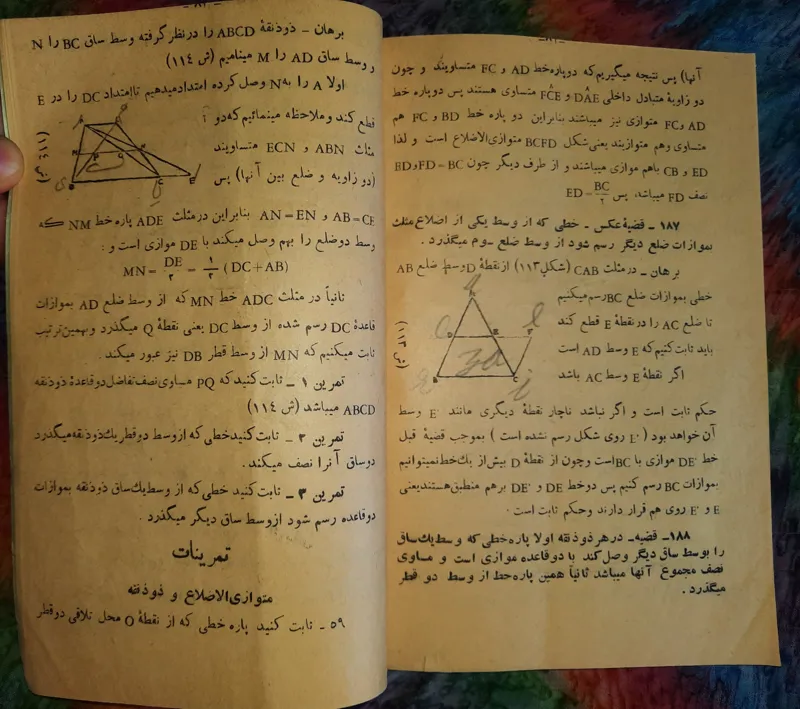 -٨١-
آنها) پس نتیجه میگیریم که دوپاره خط AD و FC متساویند و چون
دو زاویهٔ متبادل داخلی DAE و FCE متساوی هستند پس دوپاره خط
AD و FC متوازی نیز میباشند بنابراین دو پاره خط BD و FC هم
متساوی وهم متوازیند یعنی شکل BCFD متوازی‌الاضلاع است و لذا
ED و CB باهم موازی میباشند و از طرف دیگر چون FD=BC و ED
نصف FD میباشد، پس ED = BC/٢
١٨٧ - قضیهٔ عکس - خطی که از وسط یکی از اضلاع مثلث
بموازات ضلع دیگر رسم شود از وسط ضلع سوم میگذرد.
برهان - در مثلث CAB (شکل ١١٣) از نقطهٔ D وسط ضلع AB
خطی بموازات ضلع BC رسم میکنیم
تا ضلع AC را در نقطهٔ E قطع کند
باید ثابت کنیم که E وسط AD است
اگر نقطهٔ E وسط AC باشد
(ش ١١٣)
حکم ثابت است و اگر نباشد ناچار نقطهٔ دیگری مانند E' وسط
آن خواهد بود (E' روی شکل رسم نشده است) بموجب قضیهٔ قبل
خط DE' موازی با BC است و چون از نقطهٔ D بیش از یک خط نمیتوانیم
بموازات BC رسم کنیم پس دوخط DE و DE' برهم منطبق هستند یعنی
E و E' روی هم قرار دارند وحکم ثابت است.
١٨٨- قضیه- در هر ذوذنقه اولا پاره خطی که وسط یك ساق
را بوسط ساق دیگر وصل کند با دوقاعده موازی است و مساوی
نصف مجموع آنها میباشد ثانیاً همین پاره خط از وسط دو قطر
میگذرد.
برهان - ذوذنقهٔ ABCD را در نظر گرفته وسط ساق BC را N
و وسط ساق AD را M مینامیم (ش ١١٤)
اولا A را به N وصل کرده امتداد میدهیم تا امتداد DC را در E
قطع کند و ملاحظه مینمائیم که دو
مثلث ABN و ECN متساویند
(دو زاویه و ضلع بین آنها) پس
(ش ١١٤)
AB=CE و AN=EN بنابراین در مثلث ADE پاره خط NM که
وسط دوضلع را بهم وصل میکند با DE موازی است و:
MN = DE/٢ = ١/٢ (DC+AB)
ثانیاً در مثلث ADC خط MN که از وسط ضلع AD بموازات
قاعدهٔ DC رسم شده از وسط DC یعنی نقطهٔ Q میگذرد و بهمین ترتیب
ثابت میکنیم که MN از وسط قطر DB نیز عبور میکند.
تمرین ١ - ثابت کنید که PQ مساوی نصف تفاضل دوقاعدهٔ ذوذنقه
ABCD میباشد (ش ١١٤)
تمرین ٢ - ثابت کنید خطی که از وسط دوقطر یك ذوذنقه میگذرد
دوساق آنرا نصف میکند.
تمرین ٣ - ثابت کنید خطی که از وسط یك ساق ذوذنقه بموازات
دوقاعده رسم شود از وسط ساق دیگر میگذرد.
تمرینات
متوازی الاضلاع و ذوذنقه
٥٩ - ثابت کنید پاره خطی که از نقطهٔ O محل تلاقی دوقطر